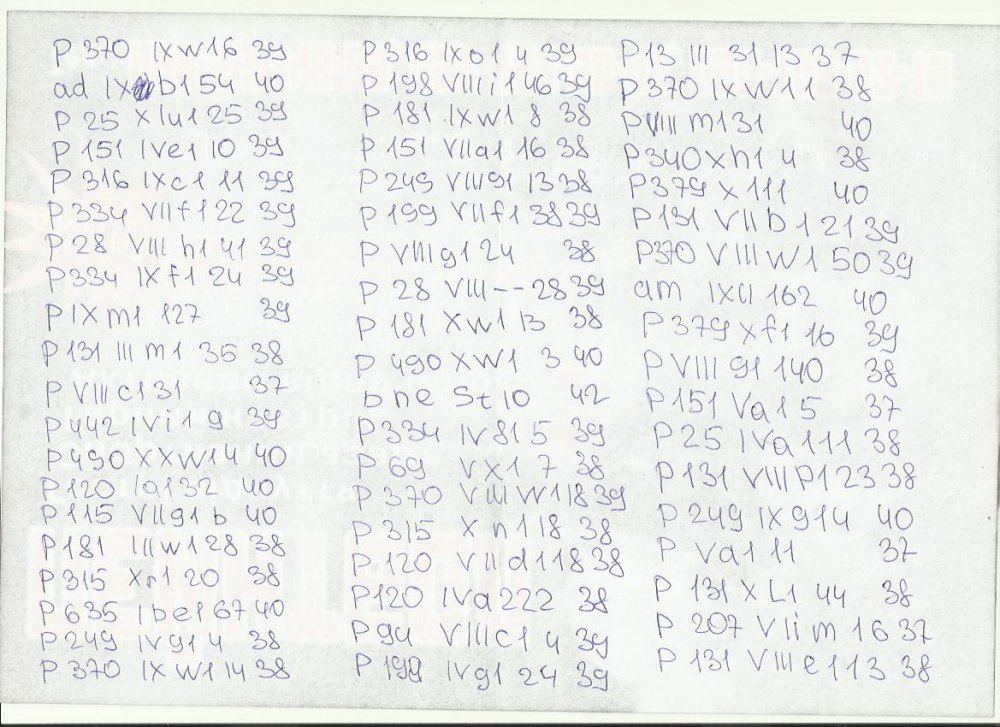 P 370 IX w 1 6 39
ad IX b 1 54 40
P 25 X lu 1 25 39
P 151 IV e 1 10 39
P 316 IX c 1 11 39
P 334 VII f 1 22 39
P 28 VIII h 1 41 39
P 334 IX f 1 24 39
P IX m 1 127 39
P 131 III m 1 35 38
P VIII c 1 31 37
P 442 IV i 1 9 39
P 490 XX w 1 4 40
P 120 I a 1 32 40
P 115 VII g 1 b 40
P 181 III w 1 28 38
P 315 X r 1 20 38
P 635 I be 1 67 40
P 249 IV g 1 4 38
P 370 IX w 1 14 38
P 316 IX o 1 4 39
P 198 VIII i 1 46 39
P 181 IX w 1 8 38
P 151 VII a 1 16 38
P 249 VIII g 1 13 38
P 199 VII f 1 38 39
P VIII g 1 24 38
P 28 VIII -- 28 39
P 181 X w 1 13 38
P 490 X w 1 3 40
bne St 10 42
P 334 IV 81 5 39
P 69 V x 1 7 38
P 370 VIII w 1 18 39
P 315 X n 1 18 38
P 120 VII d 1 18 38
P 120 IV a 222 38
P 94 VIII c 1 4 39
P 199 IV g 1 24 39
P 13 III 31 13 37
P 370 IX w 1 1 38
P VIII m 1 31 40
P 340 X h 1 4 38
P 379 X 1 11 40
P 131 VII b 1 21 39
P 370 VIII w 1 50 39
am IX cl 162 40
P 379 X f 1 16 39
P VIII g 1 140 38
P 151 V a 1 5 37
P 25 IV a 1 11 38
P 131 VIII p 1 23 38
P 249 IX g 1 4 40
P V a 1 11 37
P 131 X L 1 44 38
P 207 VII m 1 6 37
P 131 VIII e 1 13 38